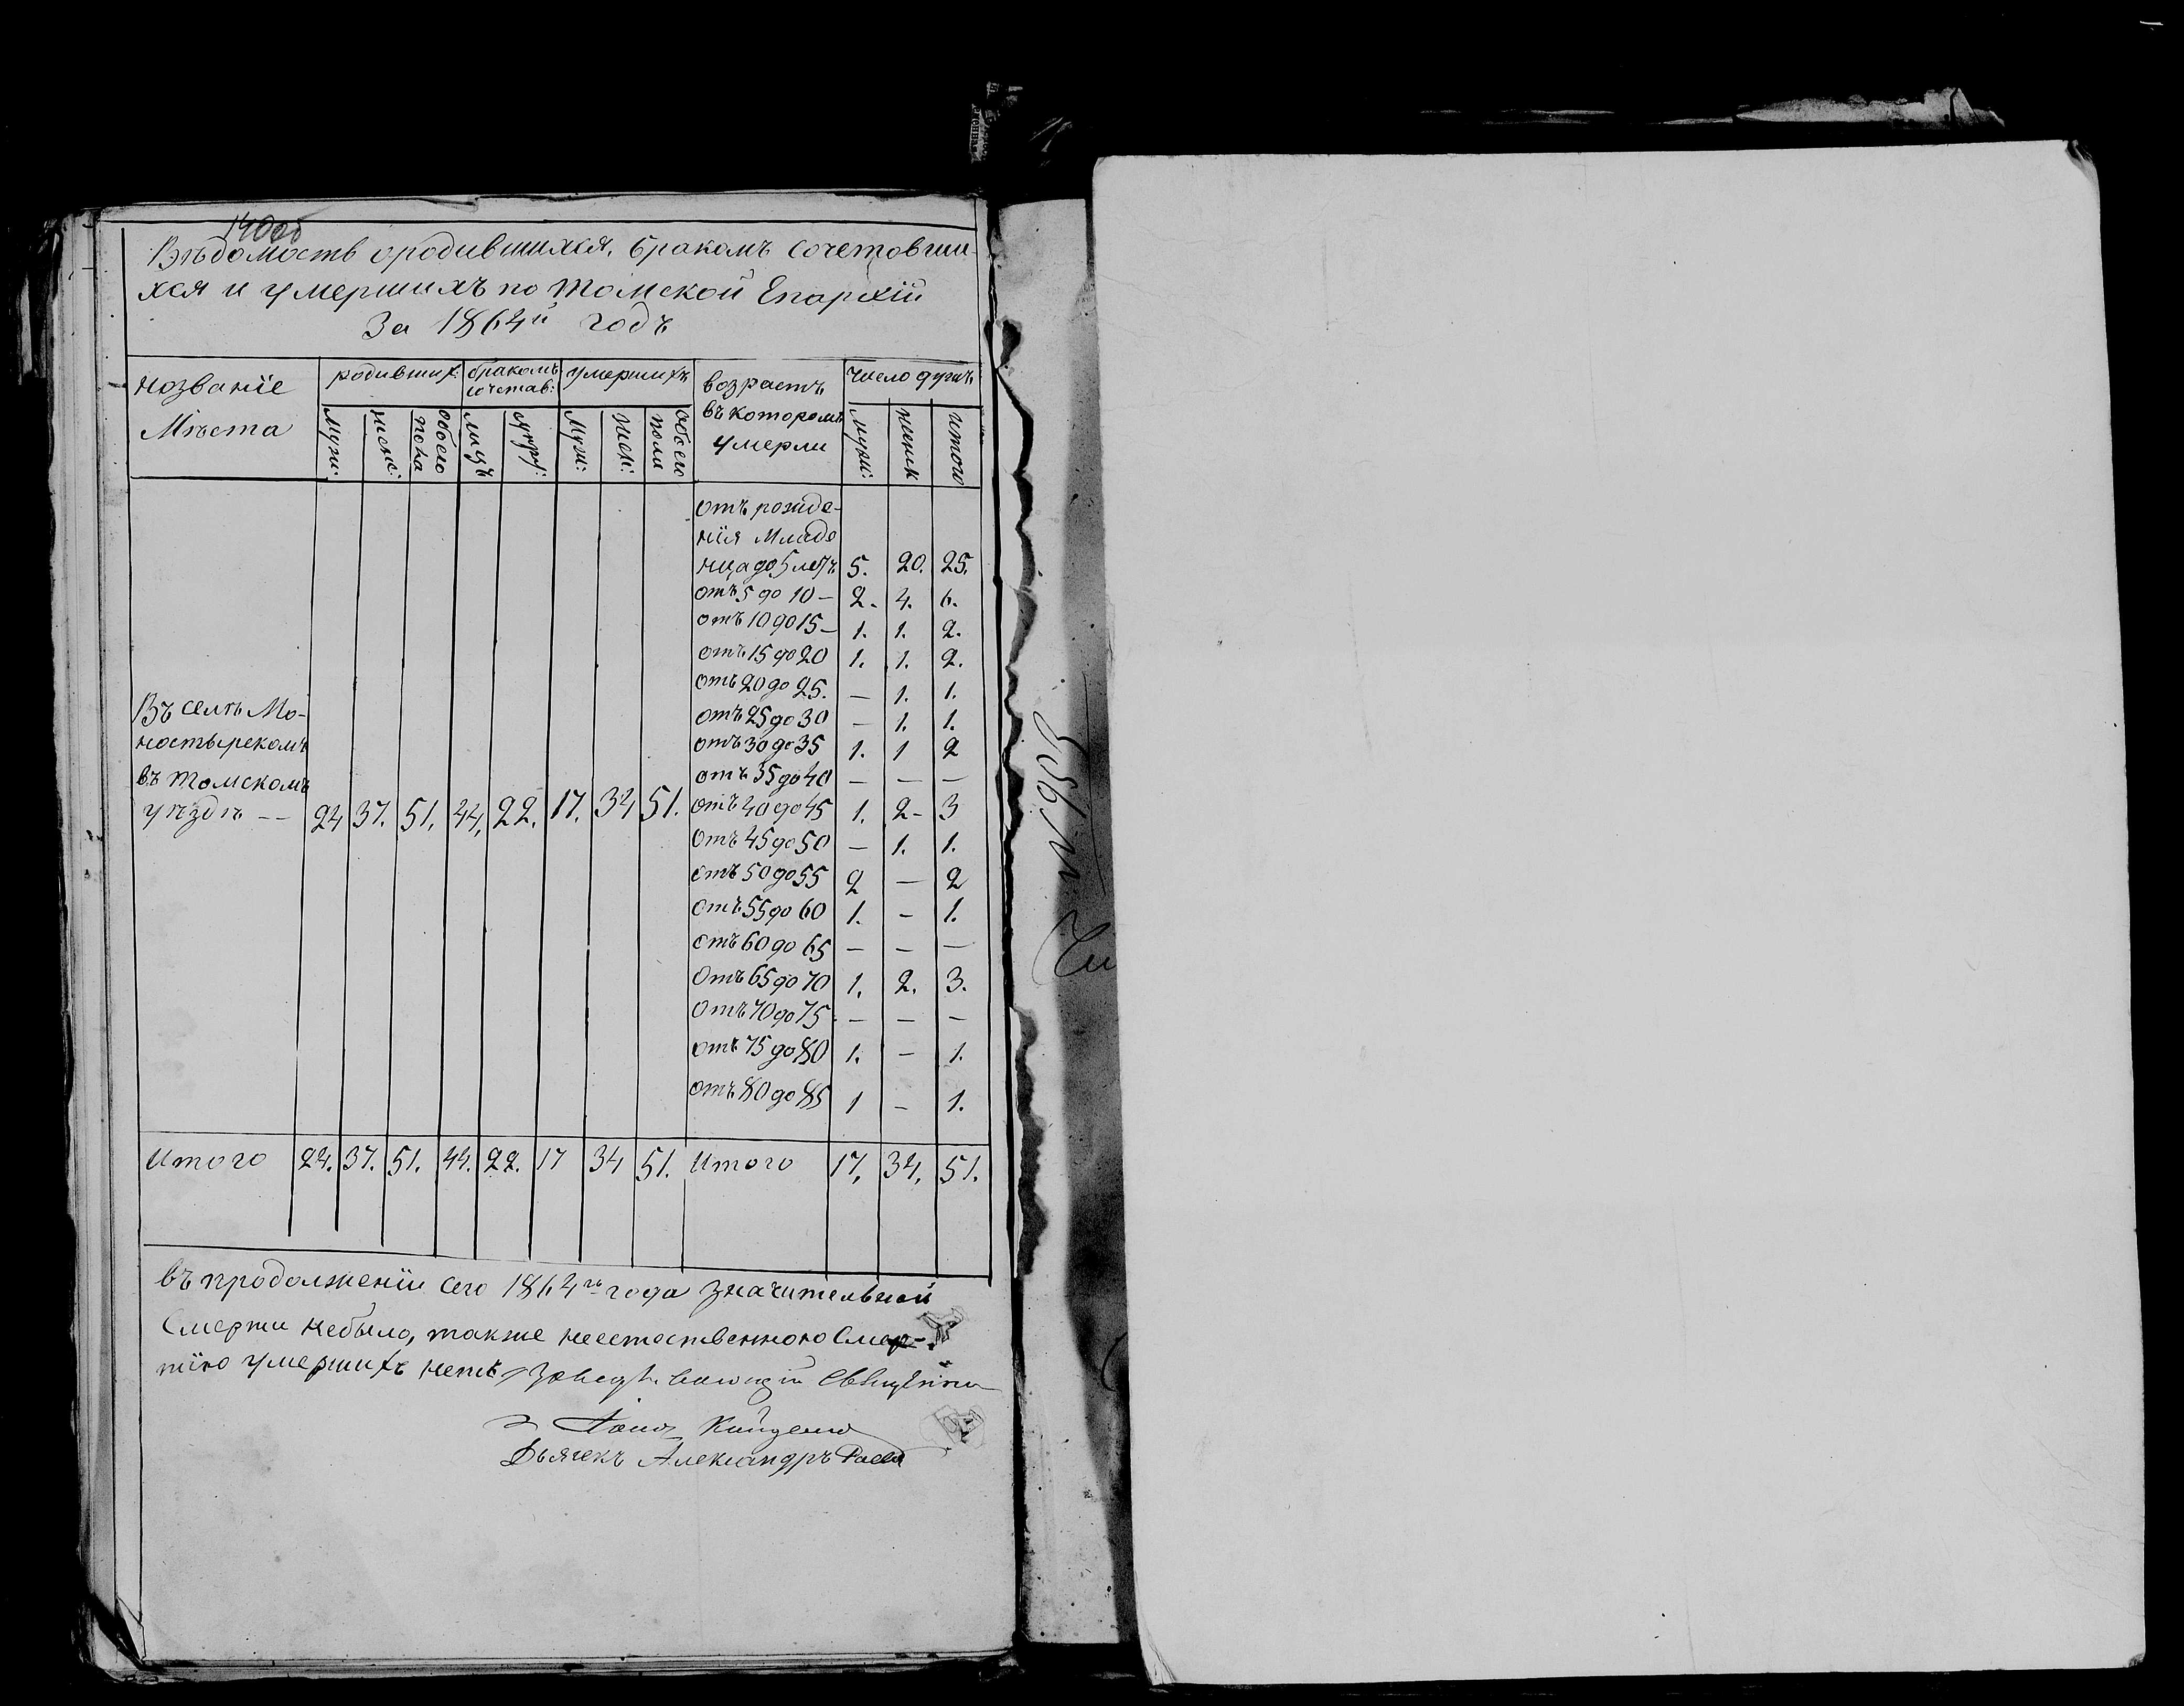 140об
Вѣдомость ородившихся, бракомъ сочетовши-
хся и умершихъ по Томской Епархiй
За 1864й годъ
Названiе
Мѣста
родивших:
бракомъ
сочетав:
умершихъ
возрастъ
въ которомъ
умерли
число душъ
Муж:
женс:
обоего
пола
лицъ
супру:
Муж:
жен:
обоего
пола
муж:
женск
итого
отъ рожде-
нiя Младе
нца до 5 летъ 5. 20. 25.
отъ 5 до 10 – 2. 4. 6.
отъ 10 до 15 – 1. 1. 2.
отъ 15 до 20 1. 1. 2.
отъ 20 до 25. — 1. 1.
отъ 25 до 30 — 1. 1.
отъ 30 до 35 1. 1 2
отъ 35 до 40 — — —
Въ селѣ Мо-
настырскомъ
въ Томскомъ
уѣздѣ – – 24 37. 51. 44. 22. 17. 34 51. отъ 40 до 45 1. 2- 3
отъ 45 до 50 — 1. 1.
отъ 50 до 55 2 — 2
отъ 55 до 60 1. – 1.
отъ 60 до 65 – – —
отъ 65 до 70 1. 2. 3.
отъ 70 до 75 – – –
отъ 75 до 80 1. – 1.
отъ 80 до 85 1 – 1.
Итого 24. 37. 51. 44. 22. 17 34 51. Итого 17. 34. 51.
въ продолженiи сего 1864го года значительной
Смерти небыло, также неестественною Смер-
тiю умершихъ нетъ, Священник
Дьячекъ Александръ